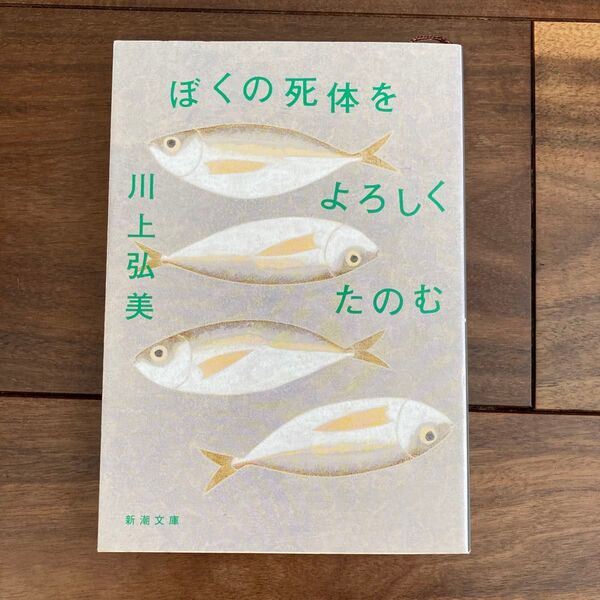 ぼくの死体を
よろしく
たのむ
川上弘美
新潮文庫